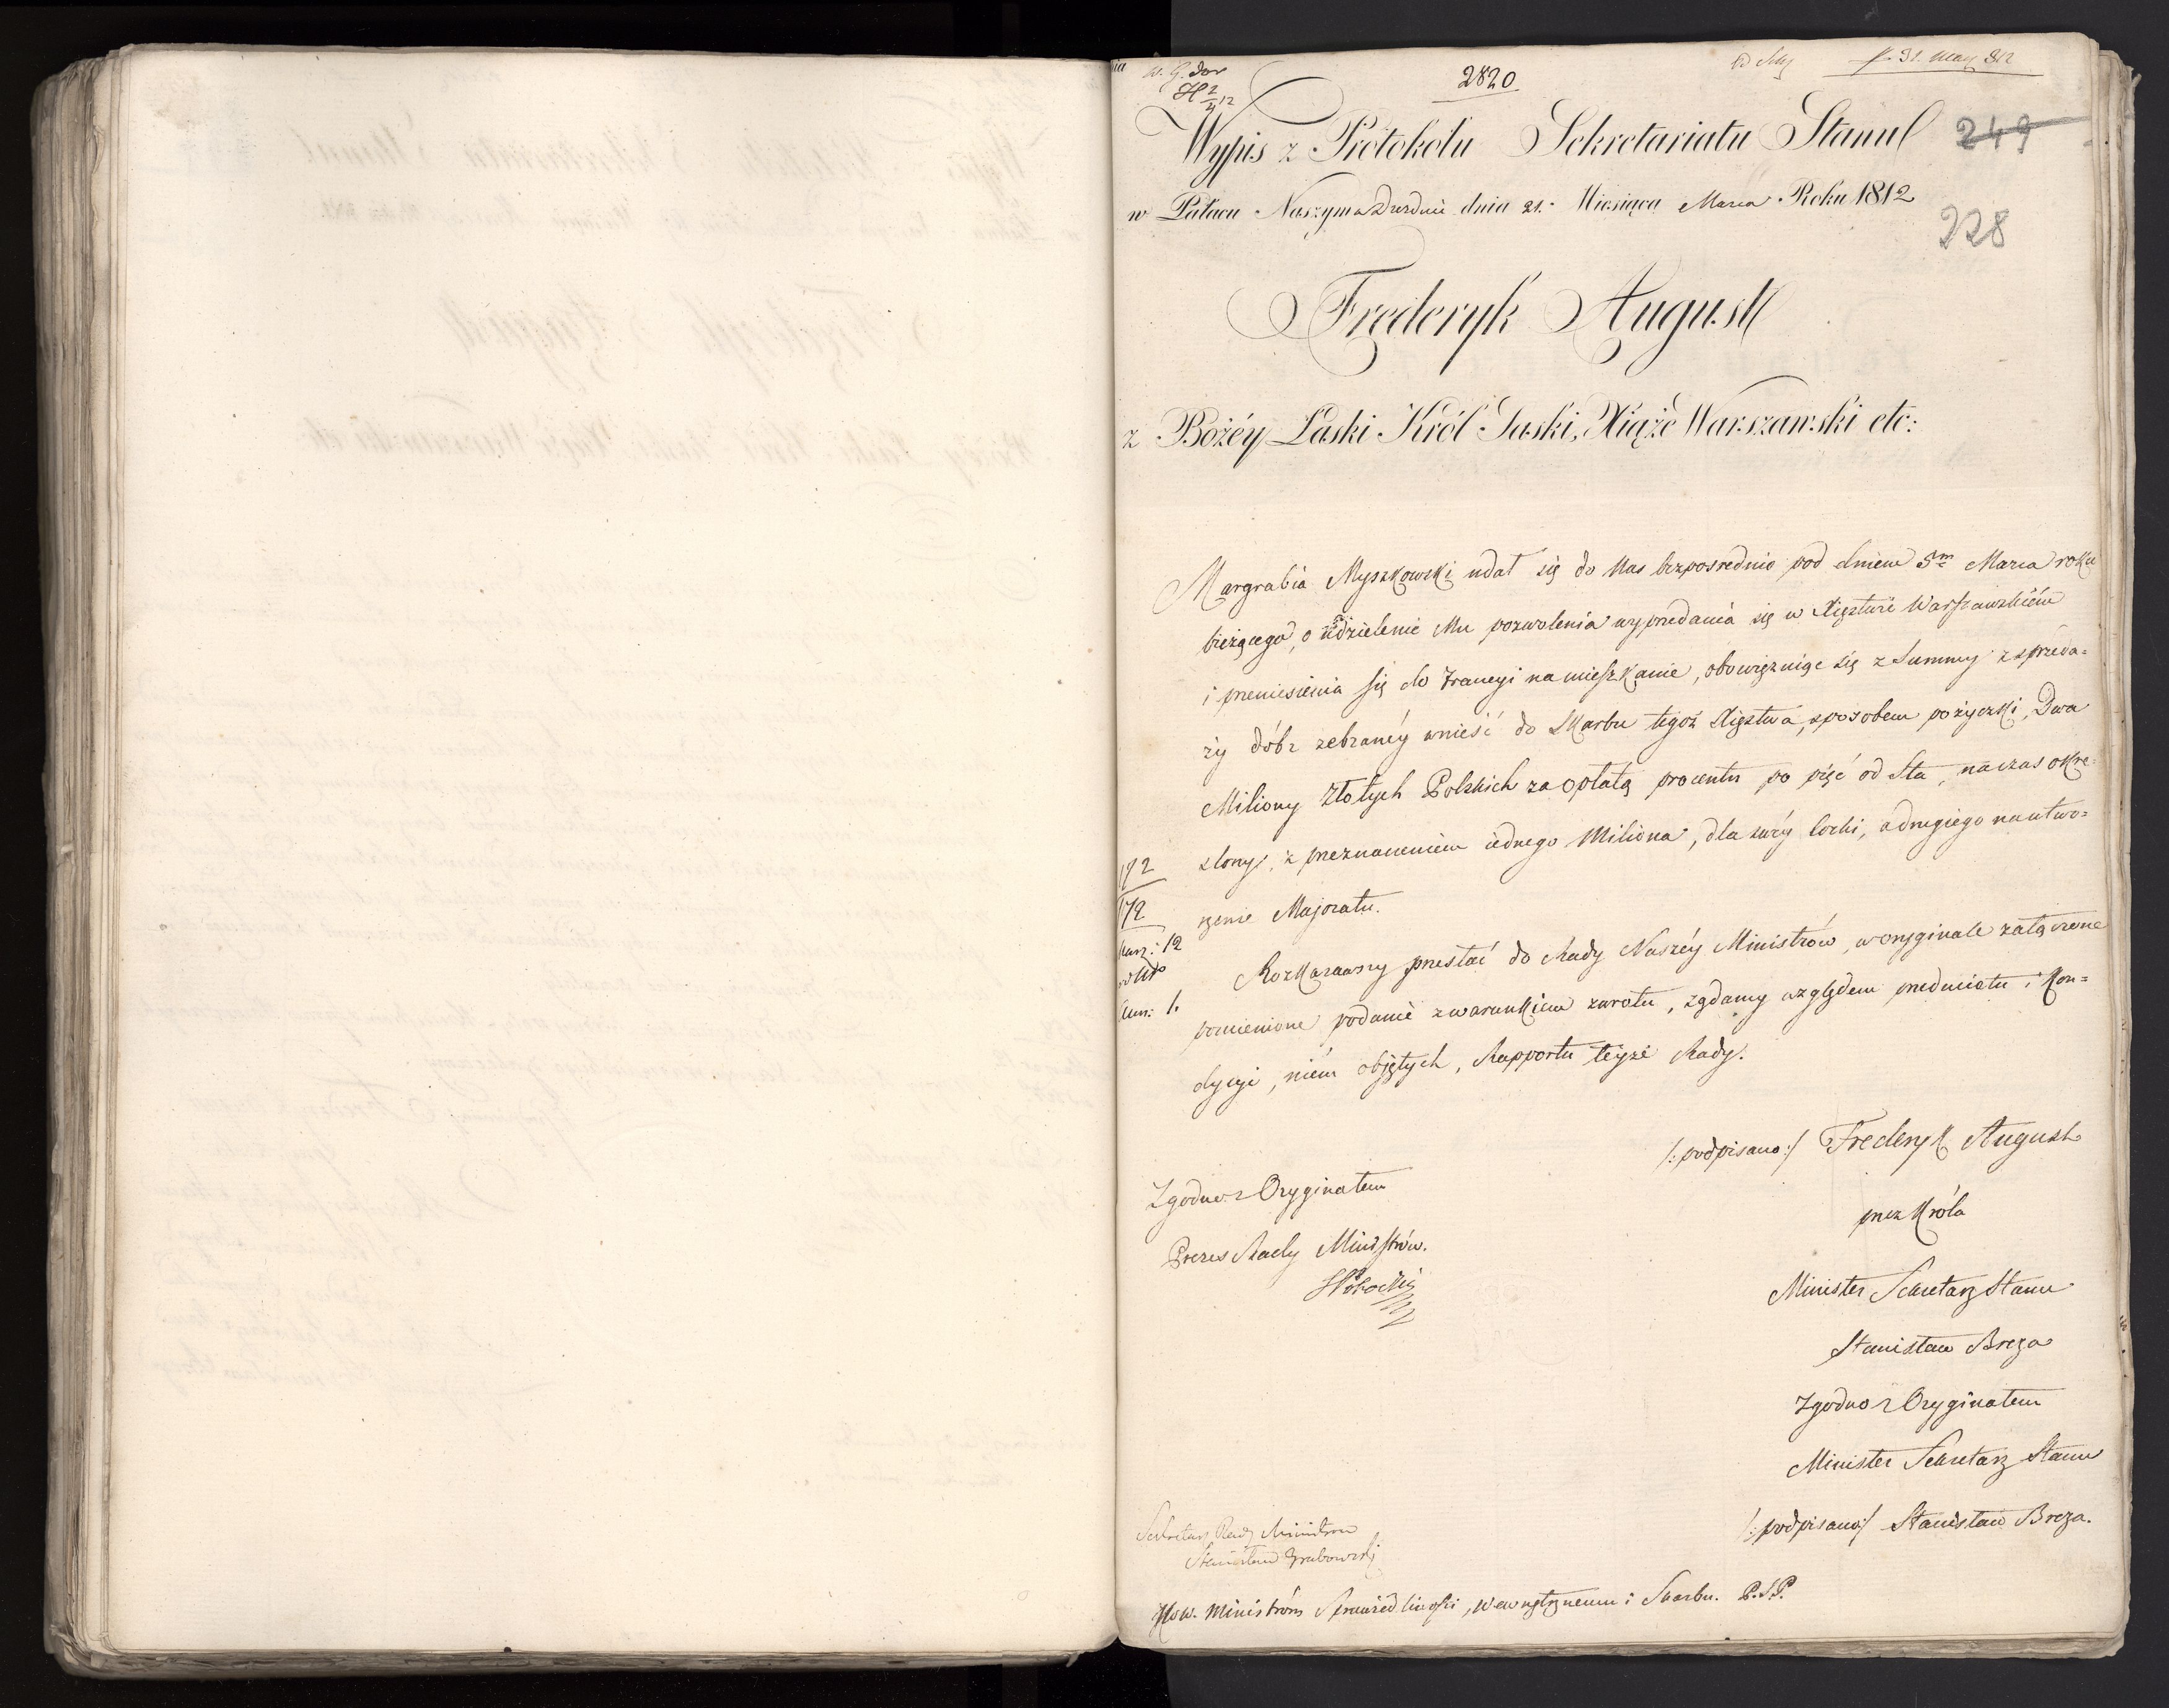 2820
31. May 812
Wypis z Protokołu Sekretariatu Stanu
249
w Pałacu Naszym w Dreźnie dnia 21. Miesiąca Marca Roku 1812
228
Frederyk August
z Bożéy Łaski Król Saski, Xiąże Warszawski etc:
Margrabia Myszkowski udał się do Nas bezpośrednio pod dniem 5m Marca roku
bieżącego, o udzielenie Mu pozwolenia wyprzedania się w Xięstwie Warszawskiém
i przeniesienia się do Francyi na mieszkanie, obowięzuiąc się z Summy z sprzeda-
ży dóbr zebranéy wnieść do Skarbu tegoż Xięstwa, sposobem pożyczki, Dwa
Miliony Złotych Polskich za opłatą procentu po pięć od Sta, na czas okre-
ślony, z przeznaczeniem iednego Miliona, dla swéy Córki, a drugiego na utwo-
rzenie Majoratu.
192
172
Rozkazaliśmy przesłać do Rady Naszéy Ministrów, w oryginale załączone
pomienione podanie z warunkiem zwrotu, żądamy względem przedmiotu i kon-
dycyi, niém objętych, Rapportu teyże Rady.
/: podpisano :/ Frederyk August
Zgodno z Oryginałem
przez Króla
Prezes Rady Ministrów.
Minister Sekretarz Stanu
Stanisław Breza
Zgodno z Oryginałem
Minister Sekretarz Stanu
/: podpisano :/ Stanisław Breza.
Sekretarz Rady Ministrów
Stanisław Grabowski
JWW. Ministrom Sprawiedliwości, Wewnętrznemu i Skarbu. P.S.P.